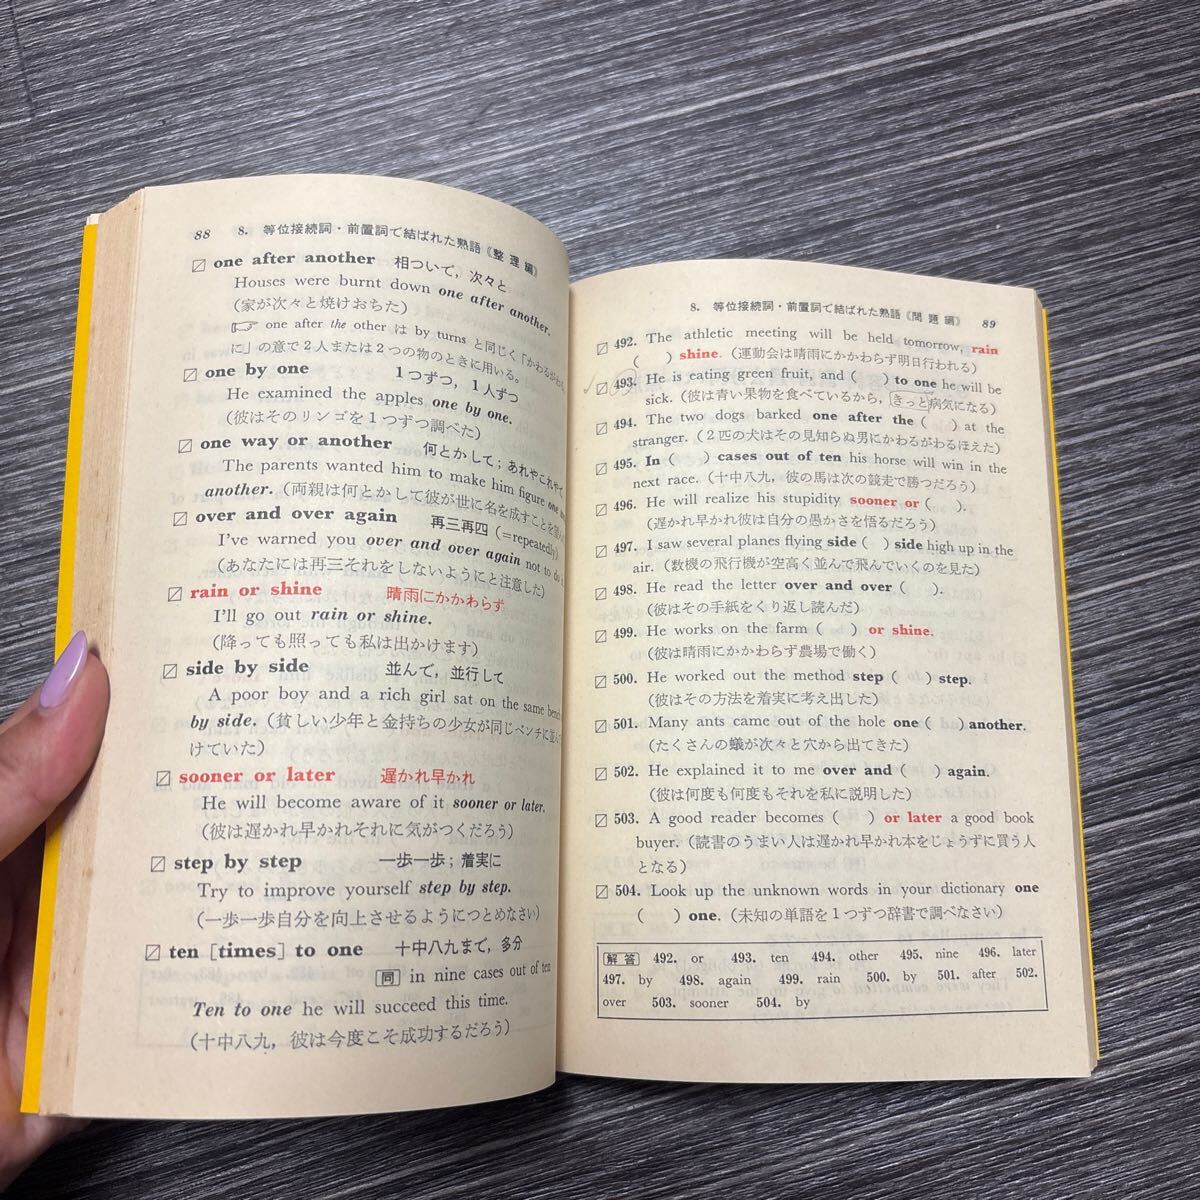 88 8. 等位接続詞・前置詞で結ばれた熟語《整理編》
one after another 相ついで，次々と
Houses were burnt down one after another.
(家が次々と焼けおちた)
☞ one after the other は by turns と同じく「かわるがわる
に」の意で2人または2つの物のときに用いる。
one by one 1つずつ，1人ずつ
He examined the apples one by one.
(彼はそのリンゴを1つずつ調べた)
one way or another 何とかして；あれやこれやで
The parents wanted him to make him figure one
another. (両親は何とかして彼が世に名を成すことを
over and over again 再三再四 (=repeatedly)
I've warned you over and over again not to do
(あなたには再三それをしないようにと注意した)
rain or shine 晴雨にかかわらず
I'll go out rain or shine.
(降っても照っても私は出かけます)
side by side 並んで，並行して
A poor boy and a rich girl sat on the same bench
by side. (貧しい少年と金持ちの少女が同じベンチに並ん
けていた)
sooner or later 遅かれ早かれ
He will become aware of it sooner or later.
(彼は遅かれ早かれそれに気がつくだろう)
step by step 一歩一歩；着実に
Try to improve yourself step by step.
(一歩一歩自分を向上させるようにつとめなさい)
ten [times] to one 十中八九まで，多分
同 in nine cases out of ten
Ten to one he will succeed this time.
(十中八九，彼は今度こそ成功するだろう)
8. 等位接続詞・前置詞で結ばれた熟語《問題編》 89
492. The athletic meeting will be held tomorrow, rain
( ) shine. (運動会は晴雨にかかわらず明日行われる)
493. He is eating green fruit, and ( ) to one he will be
sick. (彼は青い果物を食べているから，きっと病気になる)
494. The two dogs barked one after the ( ) at the
stranger. (2匹の犬はその見知らぬ男にかわるがわるほえた)
495. In ( ) cases out of ten his horse will win in the
next race. (十中八九，彼の馬は次の競走で勝つだろう)
496. He will realize his stupidity sooner or ( ).
(遅かれ早かれ彼は自分の愚かさを悟るだろう)
497. I saw several planes flying side ( ) side high up in the
air. (数機の飛行機が空高く並んで飛んでいくのを見た)
498. He read the letter over and over ( ).
(彼はその手紙をくり返し読んだ)
499. He works on the farm ( ) or shine.
(彼は晴雨にかかわらず農場で働く)
500. He worked out the method step ( ) step.
(彼はその方法を着実に考え出した)
501. Many ants came out of the hole one ( ) another.
(たくさんの蟻が次々と穴から出てきた)
502. He explained it to me over and ( ) again.
(彼は何度も何度もそれを私に説明した)
503. A good reader becomes ( ) or later a good book
buyer. (読書のうまい人は遅かれ早かれ本をじょうずに買う人
となる)
504. Look up the unknown words in your dictionary one
( ) one. (未知の単語を1つずつ辞書で調べなさい)
解答 492. or 493. ten 494. other 495. nine 496. later
497. by 498. again 499. rain 500. by 501. after 502.
over 503. sooner 504. by